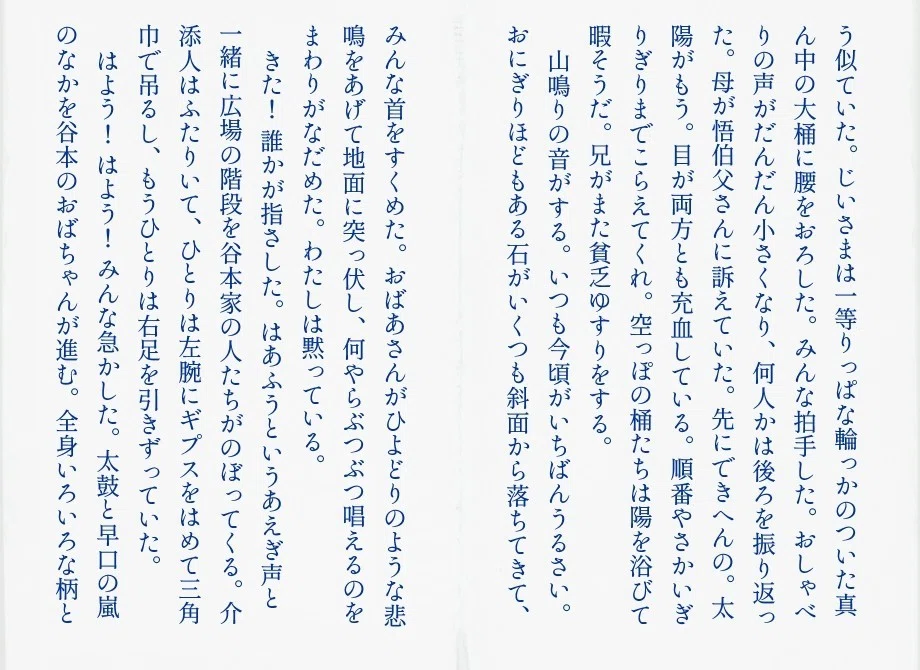 う似ていた。じいさまは一等りっぱな輪っかのついた真
ん中の大桶に腰をおろした。みんな拍手した。おしゃべ
りの声がだんだん小さくなり、何人かは後ろを振り返っ
た。母が悟伯父さんに訴えていた。先にできへんの。太
陽がもう。目が両方とも充血している。順番やさかいぎ
りぎりまでこらえてくれ。空っぽの桶たちは陽を浴びて
暇そうだ。兄がまた貧乏ゆすりをする。
山鳴りの音がする。いつも今頃がいちばんうるさい。
おにぎりほどもある石がいくつも斜面から落ちてきて、
みんな首をすくめた。おばあさんがひよどりのような悲
鳴をあげて地面に突っ伏し、何やらぶつぶつ唱えるのを
まわりがなだめた。わたしは黙っている。
きた！誰かが指さした。はあふうというあえぎ声と
一緒に広場の階段を谷本家の人たちがのぼってくる。介
添人はふたりいて、ひとりは左腕にギプスをはめて三角
巾で吊るし、もうひとりは右足を引きずっていた。
はよう！はよう！みんな急かした。太鼓と早口の嵐
のなかを谷本のおばちゃんが進む。全身いろいろな柄と